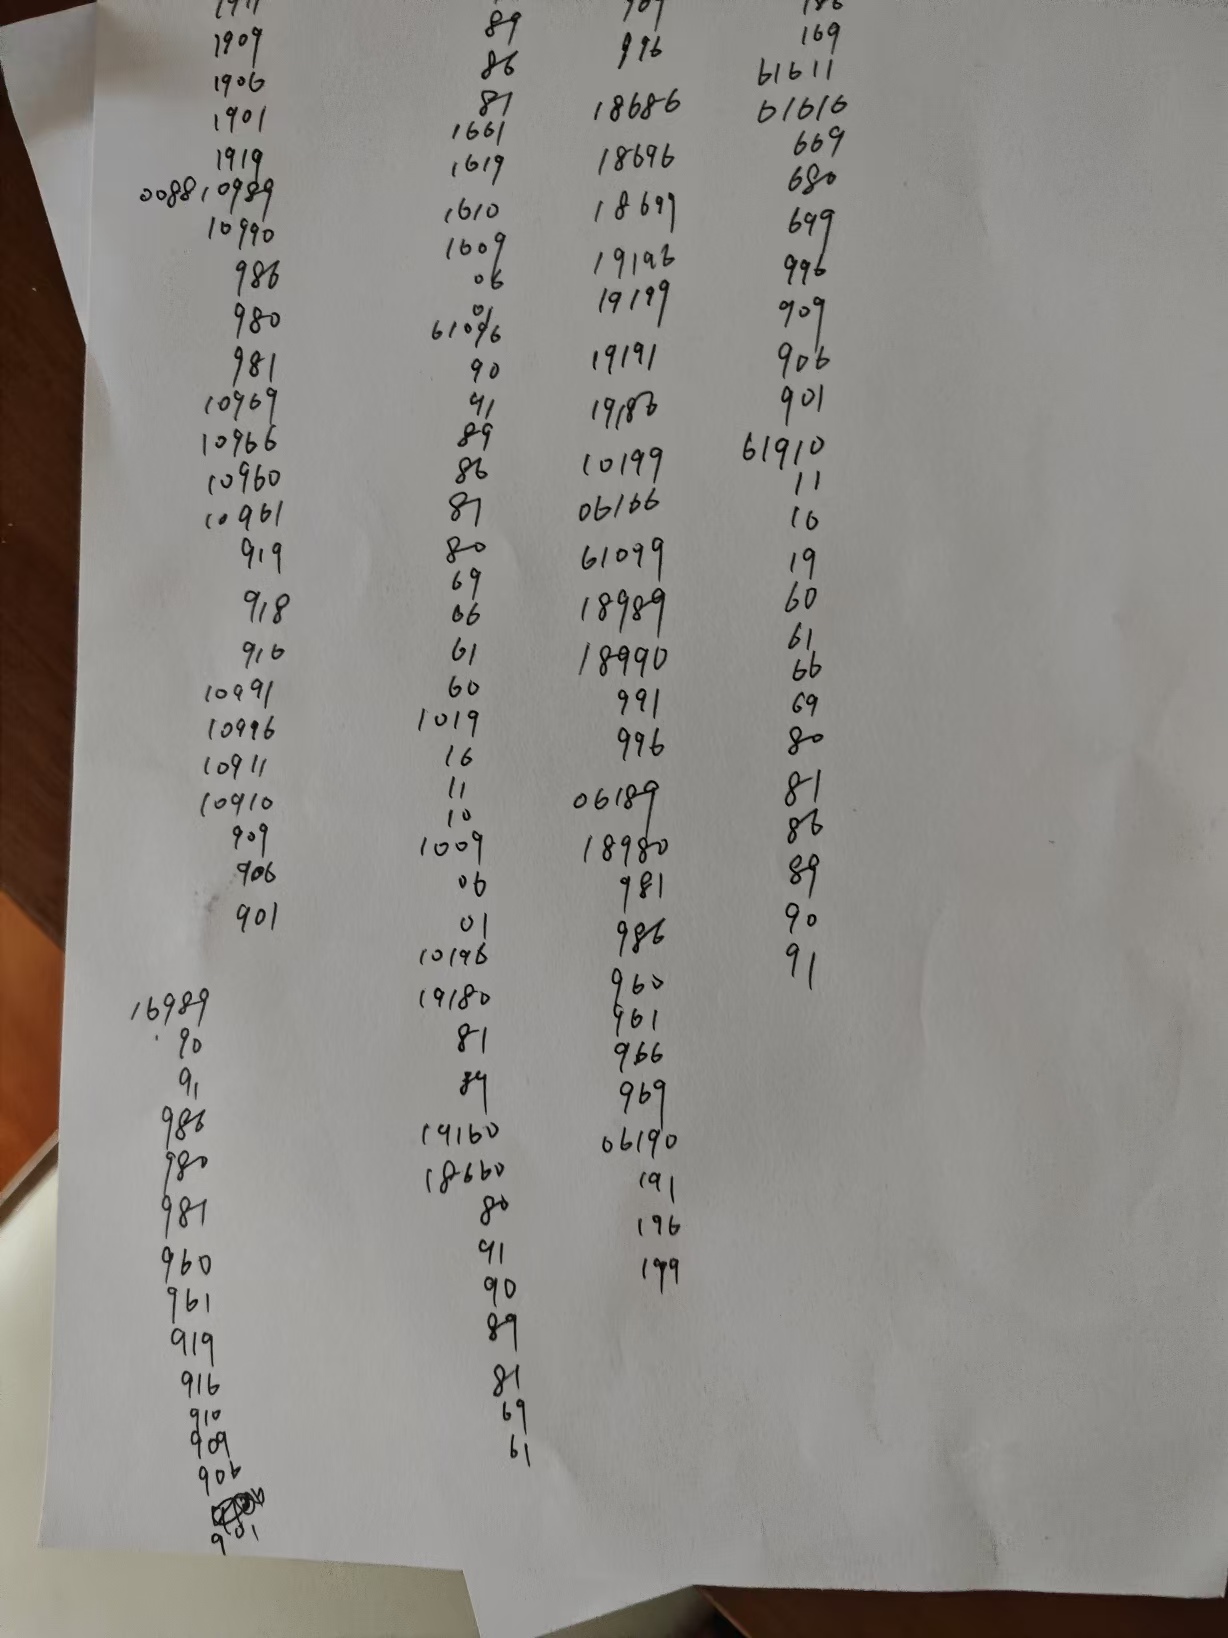 1909
1906
1901
1919
008810989
10990
986
980
981
10969
10966
10960
10961
919
918
916
10991
10996
10911
10910
909
906
901
16989
90
91
986
980
981
960
961
919
916
910
909
906
901
89
86
81
1661
1619
1610
1609
06
01
61096
90
91
89
86
81
80
69
66
61
60
1019
16
11
10
1009
06
01
10196
19180
81
89
19160
18660
80
91
90
89
81
69
61
996
18686
18696
18699
19196
19199
19191
19186
10199
06166
61099
18989
18990
991
996
06189
18980
981
986
960
961
966
969
06190
191
196
199
169
61611
61616
669
680
699
996
909
906
901
61910
11
16
19
60
61
66
69
80
81
86
89
90
91